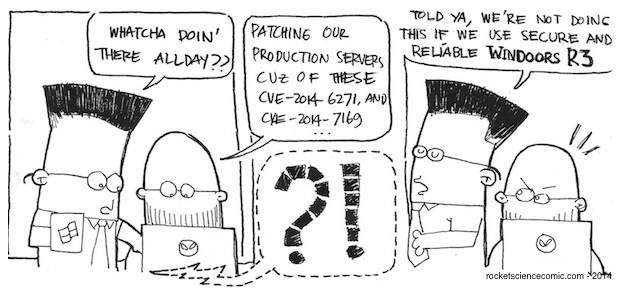 WHATCHA DOIN'
THERE ALLDAY??
PATCHING OUR
PRODUCTION SERVERS
CUZ OF THESE
CVE-2014-6271, AND
CVE-2014-7169
...
?!
TOLD YA, WE'RE NOT DOING
THIS IF WE USE SECURE AND
RELIABLE WINDOORS R3
rocketsciencecomic.com - 2014